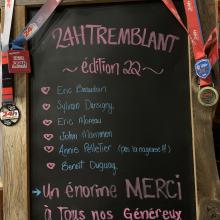 24HTREMBLANT
~ édition 22 ~
Eric Beaudoin
Sylvain Dansany
Eric Moreau
John Mommen
Annie Pelletier (pas la nageuse!!)
Benoit Duguay
→ Un énorme MERCI
à Tous nos Généreux